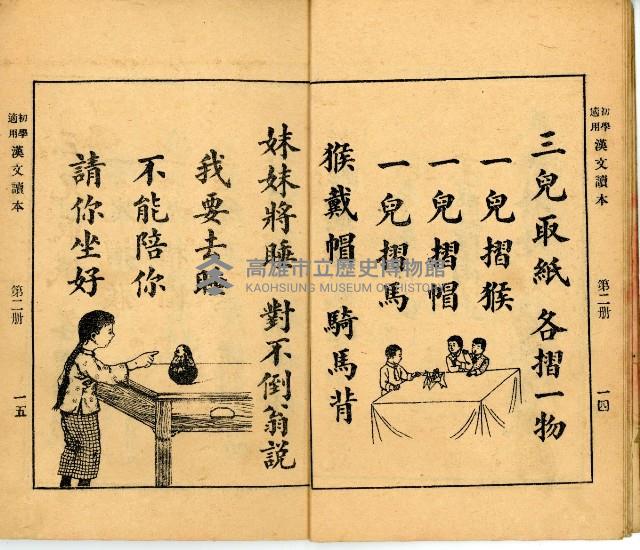 初學適用 漢文讀本 第二册 一四
三兒取紙 各摺一物
一兒摺猴
一兒摺帽
一兒摺馬
猴戴帽 騎馬背
妹妹將睡 對不倒翁說
我要去睡
不能陪你
請你坐好
初學適用 漢文讀本 第二册 一五
高雄市立歷史博物館
KAOHSIUNG MUSEUM OF HISTORY